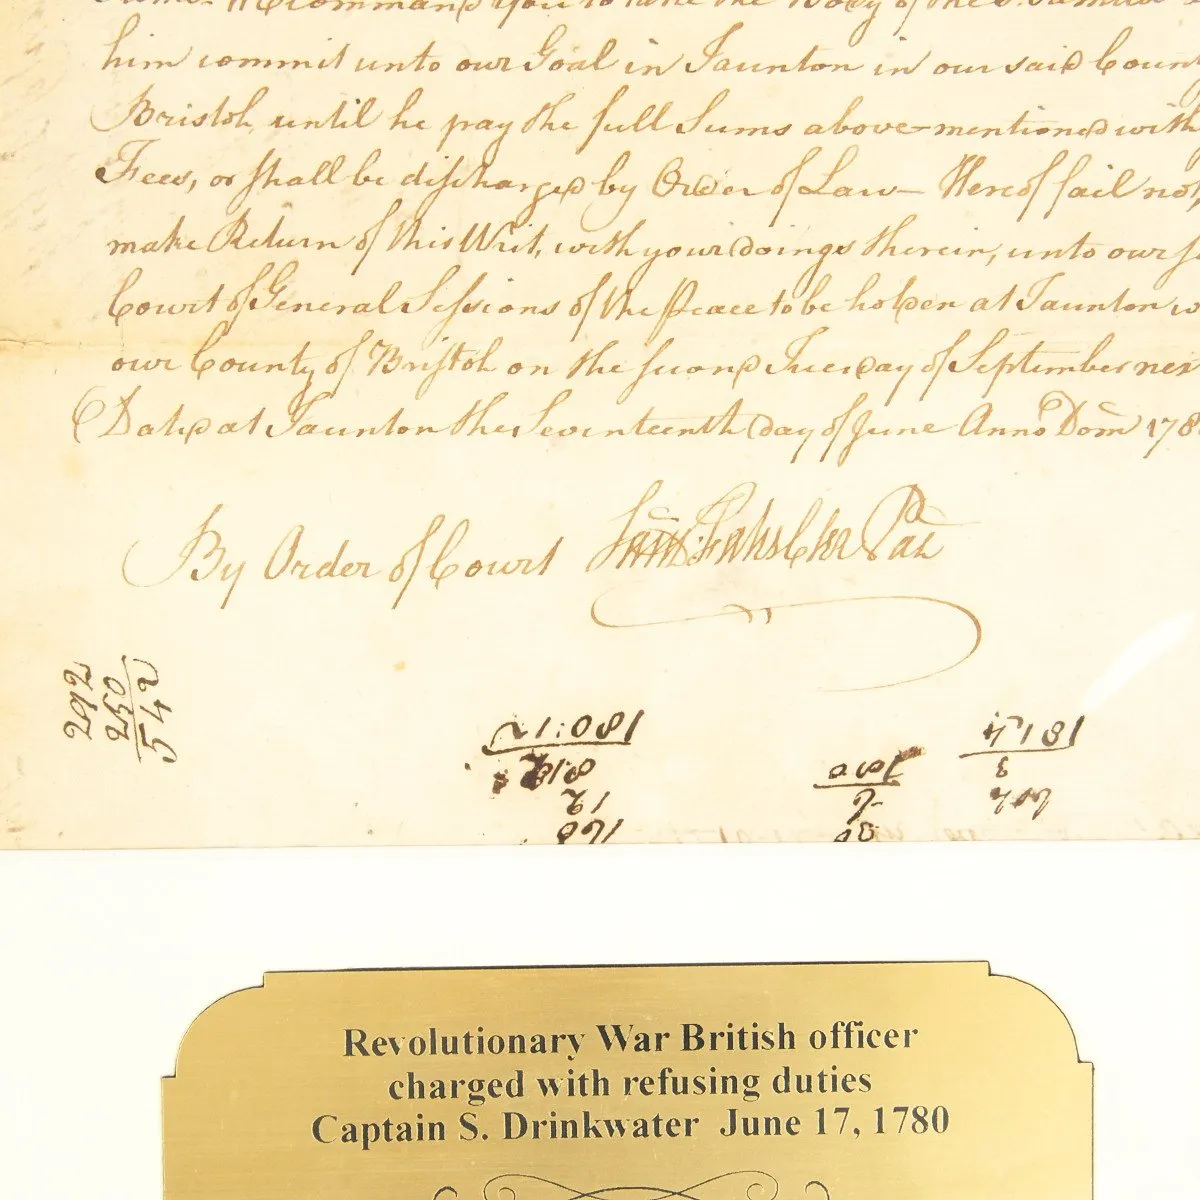 Command you to take the Body of the sd. Samuel
him commit unto our Goal in Taunton in our said Coun
Bristol, until he pay the full Sums above-mentioned with
Fees, or shall be discharged by Order of Law— Hereof fail not,
make Return of this Writ, with your doings therein, unto our s
Court of General Sessions of the Peace to be holden at Taunton
our County of Bristol on the second Tuesday of September nex
Dated at Taunton the Seventeenth day of June Anno Dom 178
By Order of Court
292
250
542
180:12
12
180
2
1817
3
Revolutionary War British officer
charged with refusing duties
Captain S. Drinkwater June 17, 1780